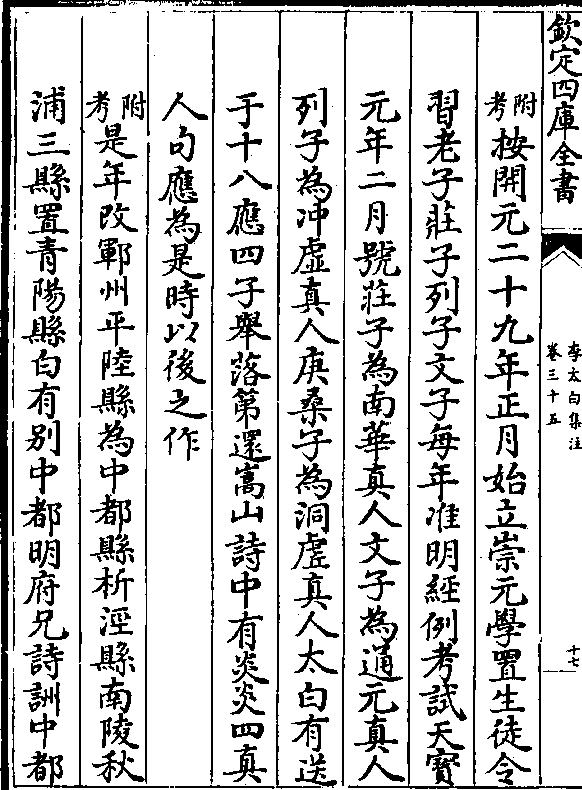 欽定四庫全書
李太白集注
卷三十五
十七
附考按開元二十九年正月始立崇元學置生徒令
習老子莊子列子文子每年准明經例考試天寶
元年二月號莊子為南華真人文子為通元真人
列子為冲虛真人庚桑子為洞虛真人太白有送
于十八應四子舉落第還嵩山詩中有炎炎四真
人句應為是時以後之作
附考是年改鄆州平陸縣為中都縣析涇縣南陵秋
浦三縣置青陽縣白有别中都明府兄詩詶中都